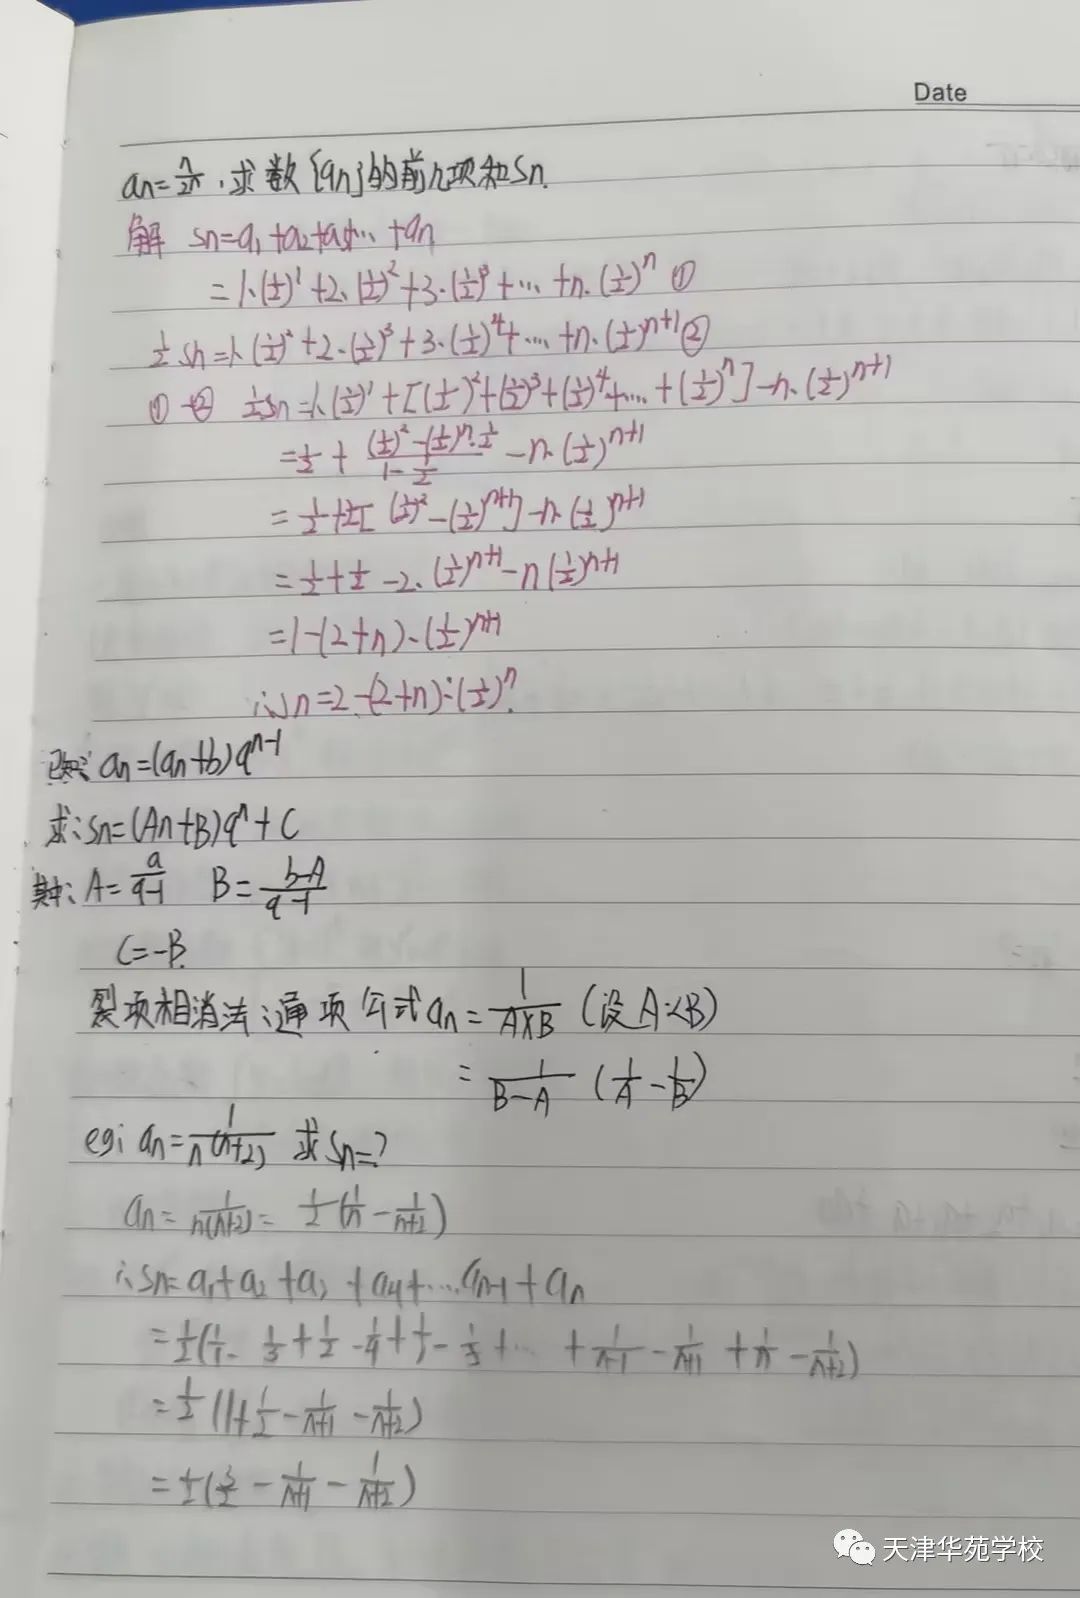 Date
an=n/2ⁿ,求数{an}的前n项和Sn.
解 Sn=a₁+a₂+a₃+…+an
=1·(1/2)¹+2·(1/2)²+3·(1/2)³+…+n·(1/2)ⁿ ①
1/2 Sn=1·(1/2)²+2·(1/2)³+3·(1/2)⁴+…+n·(1/2)ⁿ⁺¹ ②
①-② 1/2 Sn=1·(1/2)¹+[(1/2)²+(1/2)³+(1/2)⁴+…+(1/2)ⁿ]-n·(1/2)ⁿ⁺¹
=1/2+((1/2)²-(1/2)ⁿ·1/2)/(1-1/2)-n·(1/2)ⁿ⁺¹
=1/2+2[(1/2)²-(1/2)ⁿ⁺¹]-n·(1/2)ⁿ⁺¹
=1/2+1/2-2·(1/2)ⁿ⁺¹-n(1/2)ⁿ⁺¹
=1-(2+n)·(1/2)ⁿ⁺¹
∴Sn=2-(2+n)·(1/2)ⁿ.
已知:an=(an+b)qⁿ⁻¹
求:Sn=(An+B)qⁿ+C
其中:A=a/(q-1) B=(b-A)/(q-1)
C=-B.
裂项相消法:通项公式an=1/(A×B) (设A<B)
=1/(B-A) (1/A-1/B)
eg: an=1/(n(n+2)) 求Sn=?
an=1/(n(n+2))=1/2(1/n-1/(n+2))
∴Sn=a₁+a₂+a₃+a₄+…an-1+an
=1/2(1/1-1/3+1/2-1/4+1/3-1/5+…+1/(n-1)-1/(n+1)+1/n-1/(n+2))
=1/2(1+1/2-1/(n+1)-1/(n+2))
=1/2(3/2-1/(n+1)-1/(n+2))
天津华苑学校